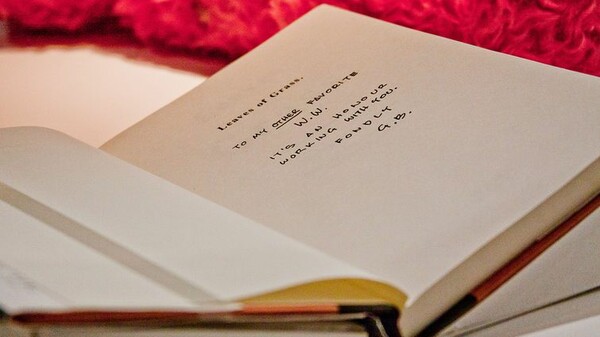 Leaves of Grass.
TO MY OTHER FAVORITE
W.W.
IT'S AN HONOUR
WORKING WITH YOU.
FONDLY
G.B.